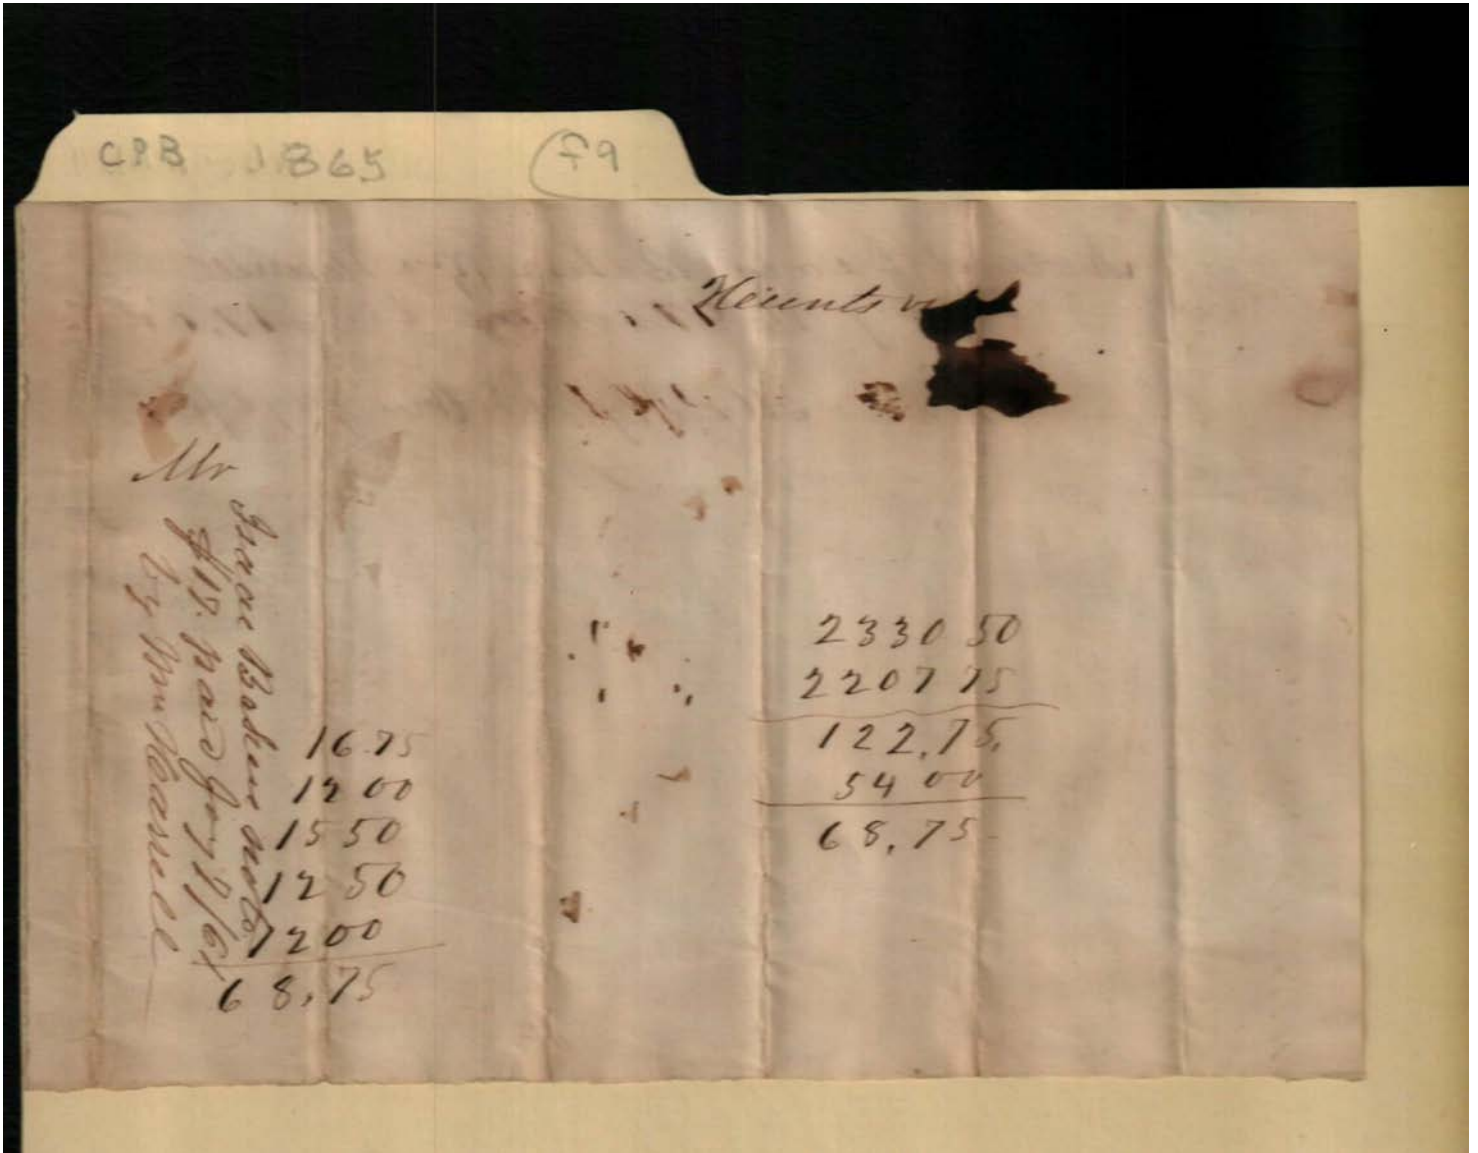 CPB 1865 f9
Hunts
Mr
Isaac Baskins note
$17. paid Jany 7/65
by Wm Harrell
16.75
12 00
15 50
12 50
12 00
68.75
2330 50
2207 75
122.75.
54 00
68.75